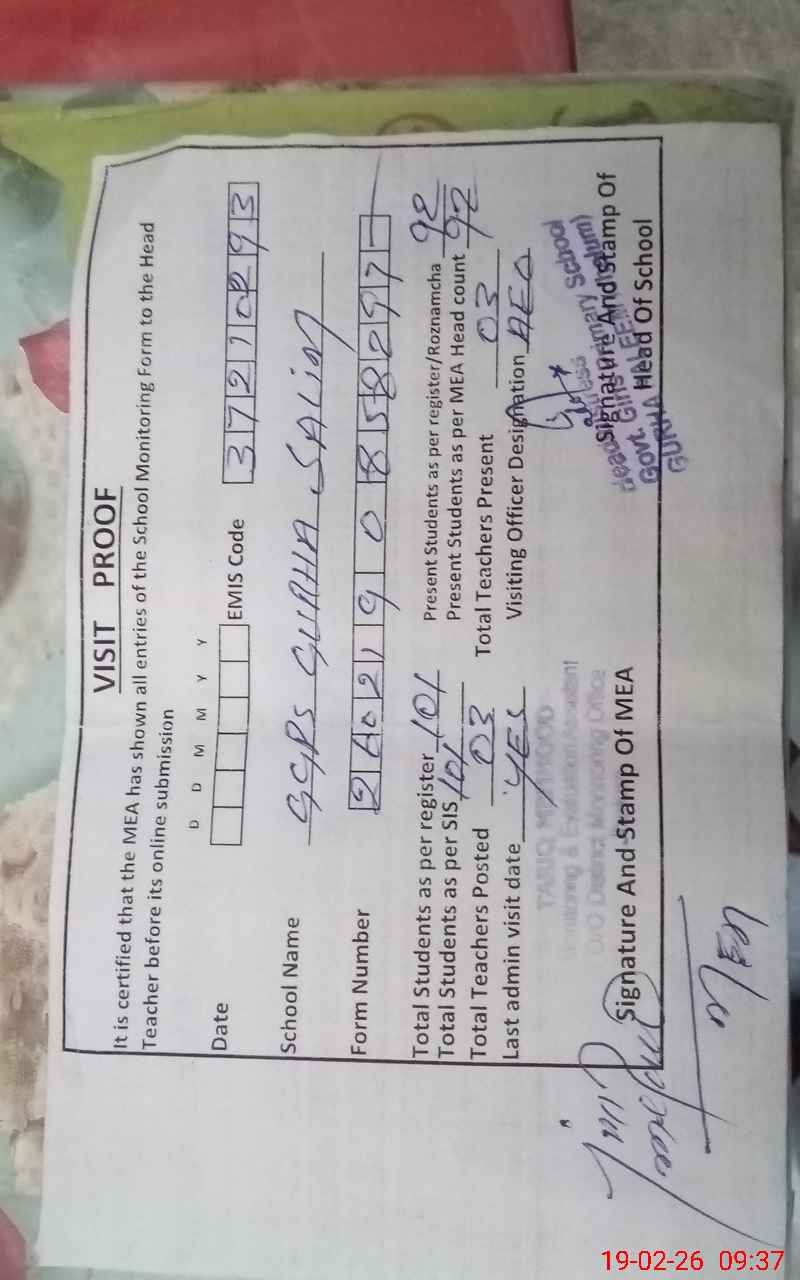 VISIT PROOF
It is certified that the MEA has shown all entries of the School Monitoring Form to the Head
Teacher before its online submission
D D M M Y Y
Date EMIS Code 37210293
School Name GGPS GURHA SALIM
Form Number
Total Students as per register 101 Present Students as per register/Roznamcha 92
Total Students as per SIS 101 Present Students as per MEA Head count 92
Total Teachers Posted 03 Total Teachers Present 03
Last admin visit date YES Visiting Officer Designation AEO
TARIQ MEHMOOD
Monitoring & Evaluation Assistant
O/O District Monitoring Office
Govt. Girls
GURHA
Signature And Stamp Of MEA
Signature And Stamp Of
Head Of School
19-02-26 09:37